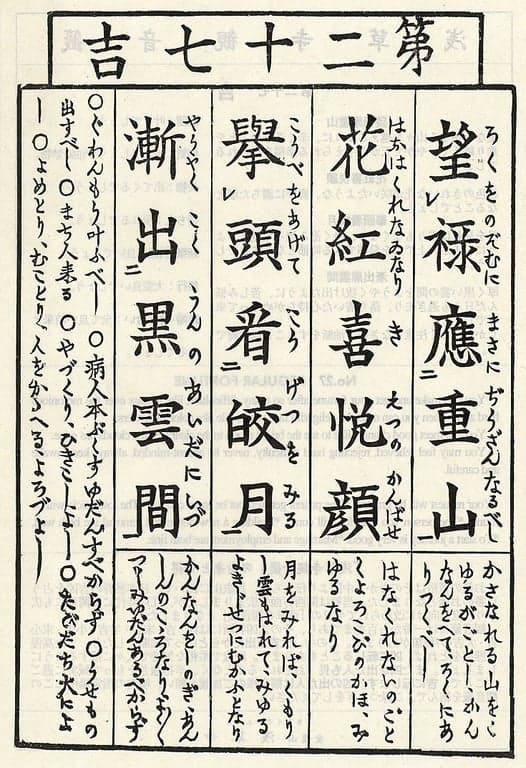 第二十七吉
ろくをのぞむに まさに ぢうざんなるべし
望レ禄應二重山一
かさなれる山をこ
ゆるがごとしかん
なんをへてろくにあ
りつくべし
はなはくれなゐなり きゑつのかんばせ
花紅喜悦顔
はなくれないのごと
くよろこびのかほゝみ
ゆるなり
かうべをあげて こうげつをみる
擧レ頭看二皎月一
月をみればくもり
し雲もはれてみゆる
よき せにむかふとなり
やうやく こくうんのあいだにいづ
漸出二黒雲間一
かんなんをしのぎあん
しんのこゝろなりよく〳〵
つゝみゆだんあるべからず
○ぐわんもう叶ふべし ○病人本ぶくすゆだんすべからず ○うせもの
出すべし ○まち人来る ○やづくり、ひきこしよし ○たびだち大によ
し ○よめとり、むことり、人をかゝへるよろづよし